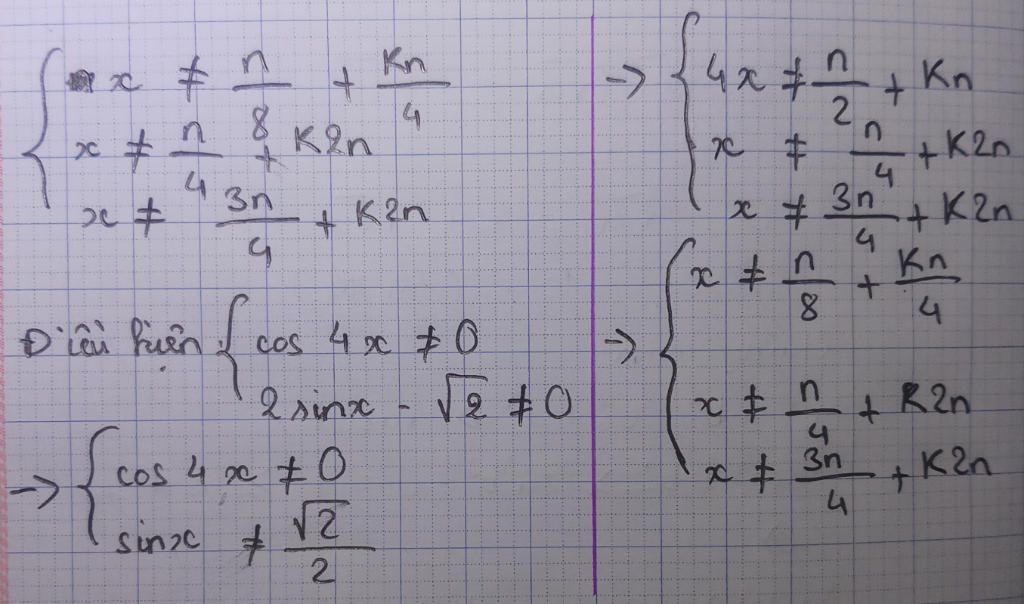 x ≠ π/8 + Kπ/4
x ≠ π/4 + K2π
x ≠ 3π/4 + K2π
Điều kiện { cos 4x ≠ 0
2 sinx - √2 ≠ 0
→ { cos 4x ≠ 0
sinx ≠ √2/2
→ { 4x ≠ π/2 + Kπ
x ≠ π/4 + K2π
x ≠ 3π/4 + K2π
→ { x ≠ π/8 + Kπ/4
x ≠ π/4 + K2π
x ≠ 3π/4 + K2π